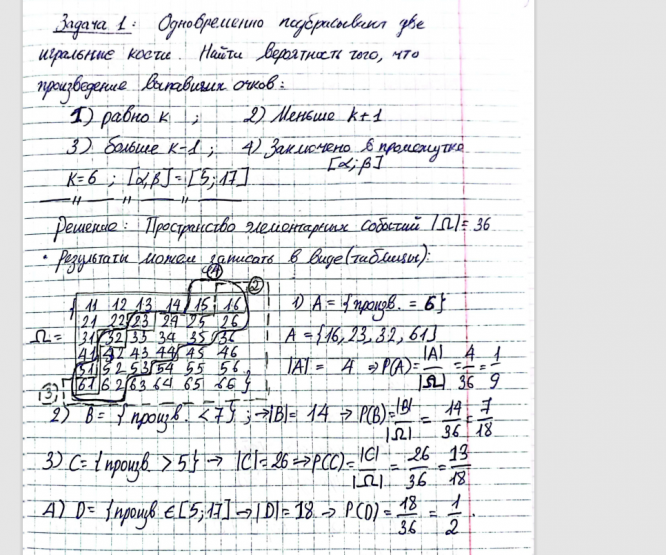 Задача 1: Одновременно подбрасывают две
игральные кости. Найти вероятность того, что
произведение выпавших очков:
1) равно k ; 2) Меньше k+1
3) больше k-1 ; 4) Заключено в промежутке
[α;β]
k=6 ; [α;β]=[5;17]
Решение: Пространство элементарных событий |Ω|= 36
• Результаты можем записать в виде (таблицы):
④
②
11 12 13 14 15 16
21 22 23 24 25 26
Ω = {31 32 33 34 35 36
41 42 43 44 45 46
51 52 53 54 55 56
61 62 63 64 65 66 }
③
1) A = {произв. = 6}
A = {16, 23, 32, 61}
|A| = 4 ⇒ P(A)= |A|/|Ω| = 4/36 = 1/9
2) B = { произв. < 7} ; →|B|= 14 → P(B)= |B|/|Ω| = 14/36 = 7/18
3) C = {произв. > 5} → |C|=26 ⇒ P(C)= |C|/|Ω| = 26/36 = 13/18
4) D= {произв ∈ [5;17] → |D|= 18 → P(D)= 18/36 = 1/2 .